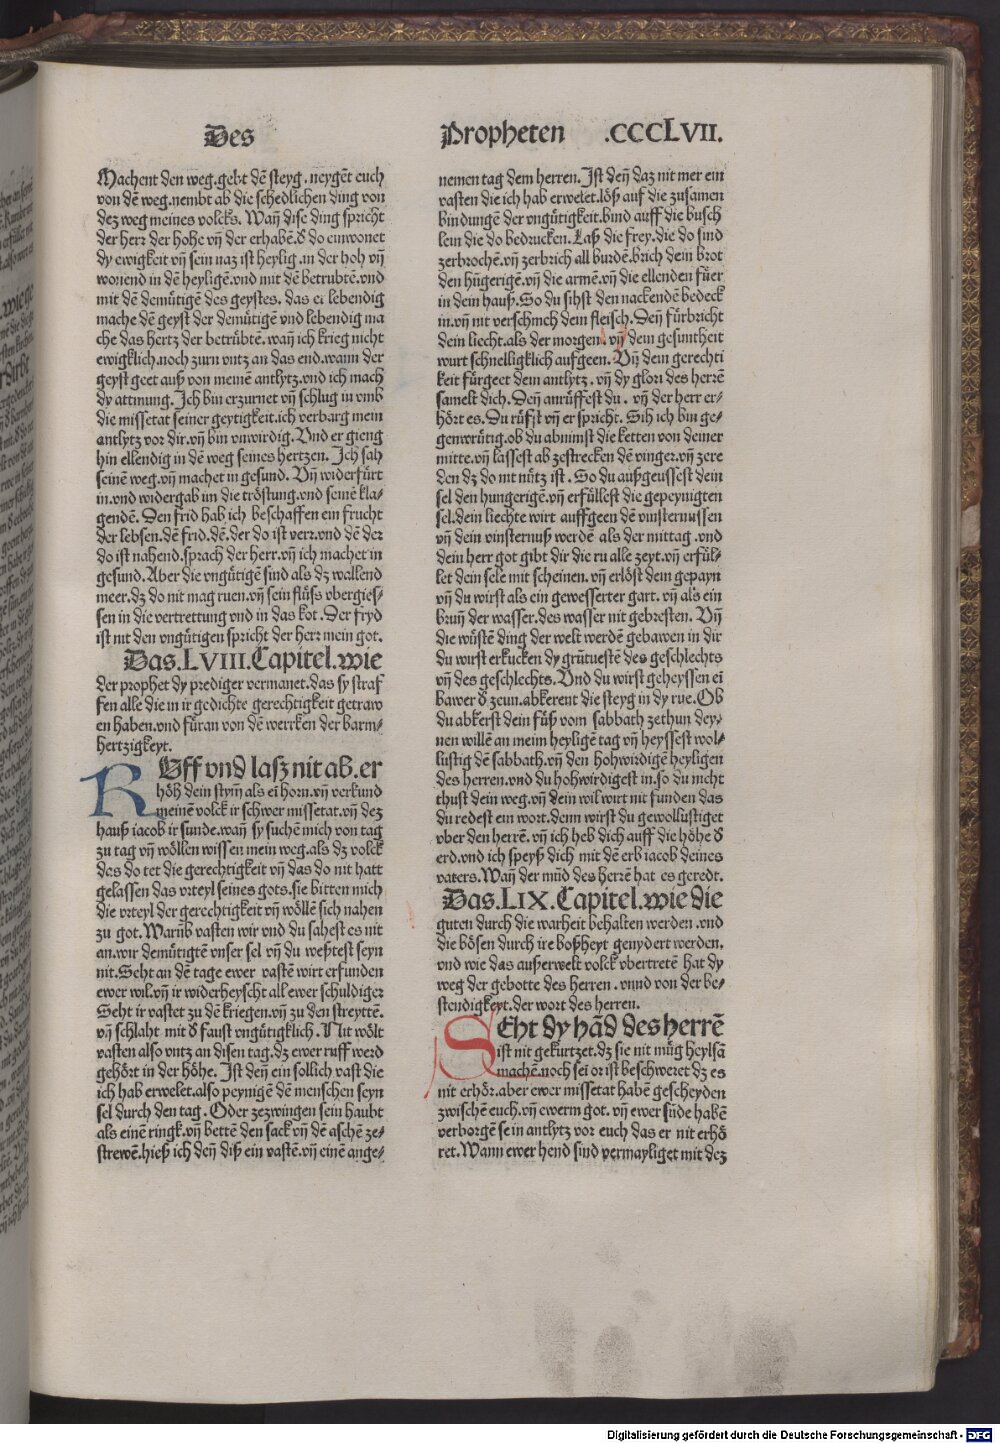 Des
Propheten .CCCLVII.
Machent den weg.gebt dē steyg.neygēt euch
von dē weg.nembt ab die schedlichen ding von
dez weg meines volcks. Wañ dise ding spricht
der herr der hohe vñ der erhabē.d̄ do einwonet
dy ewigkeit vñ sein naz ist heylig.in der hoh vñ
wonend in dē heyligē.vnd mit dē betrubtē.vnd
mit dē demütigē des geystes. das ei lebendig
mache dē geyst der demütigē vnd lebendig ma
che das hertz der betrübtē.wañ ich krieg nicht
ewigklich.noch zurn vntz an das end.wann der
geyst geet auß von meinē antlytz.vnd ich mach
dy attmung.Ich bin erzurnet vñ schlug in vmb
die missetat seiner geytigkeit.ich verbarg mein
antlytz vor dir.vñ bin vnwirdig.Vnd er gieng
hin ellendig in dē weg seines hertzen. Ich sah
seinē weg.vñ machet in gesund. Vñ widerfürt
in.vnd widergab im die tröstung.vnd seinē kla⸗
gendē. Den frid hab ich beschaffen ein frucht
der lebsen.dē frid.dē.der do ist verr.vnd dē der
do ist nahend.sprach der herr.vñ ich machet in
gesund.Aber die vngütigē sind als dz wallend
meer.dz do nit mag ruen.vñ sein flüß vbergies⸗
sen in die vertrettung vnd in das kot.Der fryd
ist nit den vngütigen spricht der herr mein got.
Das.LVIII.Capitel.wie
der prophet dy prediger vermanet.das sy straf
fen alle die in ir gedichte gerechtigkeit getraw
en haben.vnd füran von dē werrken der barm⸗
hertzigkeyt.
RVff vnd lasz nit ab.er
höh dein stym̄ als ei horn.vñ verkund
meinē volck ir schwer missetat.vñ dez
hauß iacob ir sunde.wañ sy suchē mich von tag
zu tag vñ wöllen wissen mein weg.als dz volck
das do tet die gerechtigkeit vñ das do nit hatt
gelassen das vrteyl seines gots.sie bitten mich
die vrteyl der gerechtigkeit vñ wöllē sich nahen
zu got.Warūb vasten wir vnd du sahest es nit
an.wir demütigtē vnser sel vñ du weßtest seyn
nit.Seht an dē tage ewer vastē wirt erfunden
ewer wil.vñ ir widerheyscht all ewer schuldiger
Seht ir vastet zu dē kriegen.vñ zu den streyttē.
vñ schlaht mit d̄ faust vngütigklich. Nit wölt
vasten also vntz an disen tag.dz ewer ruff werd
gehört in der höhe. Ist deñ ein sollich vast die
ich hab erwelet.also peynigē dē menschen seyn
sel durch den tag. Oder zezwingen sein haubt
als einē ringk.vñ bettē den sack vñ dē aschē ze⸗
strewē.hieß ich deñ diß ein vastē.vñ einē ange⸗
nemen tag dem herren.Ist deñ daz nit mer ein
vasten die ich hab erwelet.löß auf die zusamen
bindungen der vngütigkeit.bind auff die busch
lein die do bedrucken.Laß die frey.die do sind
zerbrochē.vñ zerbrich all burdē.brich dein brot
den hūgerigē.vñ die armē.vñ die ellenden füer
in dein hauß.So du sihst den nackendē bedeck
in.vñ nit verschmeh dem fleisch.Deñ fürbricht
dein liecht.als der morgen.vñ dein gesuntheit
wurt schnelligklich aufgeen. Vñ dein gerechti
keit fürgeet dein antlytz.vñ dy glori des herrē
samelt dich.Deñ anrüffest du. vñ der herr er⸗
hört es.Du rüfst vñ er spricht. Sih ich bin ge⸗
genwrütig.ob du abnimst die ketten von deiner
mitte.vñ lassest ab zestrecken dē vinger.vñ zere
den dz do nit nütz ist. So du außgeussest dein
sel den hungerigē.vñ erfüllest die gepeynigten
sel.dein liechte wirt auffgeen dē vinsternussen
vñ dein vinsternuß werdē als der mittag.vnd
dein herr got gibt dir die ru alle zeyt.vñ erfül⸗
let dein sele mit scheinen.vñ erlöst dein gepayn
vñ du wirst als ein gewesserter gart.vñ als ein
bruñ der wasser.des wasser nit gebresten. Vñ
die wüstē ding der welt werdē gebawen in dir
du wirst erkucken dy grūtuestē des geschlechts
vñ des geschlechts.Vnd du wirst geheyssen ei
bawer d̄ zeun.abkerent die steyg in dy rue.Ob
du abkerst dein füß vom sabbath zethun dey⸗
nen willē an meim heyligē tag vñ heyssest wol⸗
lustig dē sabbath.vñ den hohwirdigē heyligen
des herren.vnd du hohwirdigest in.so du nicht
thust dein weg.vñ dein wil wirt nit funden das
du redest ein wort.denn wirst du gewollustiget
vber den herrē.vñ ich heb dich auff die höhe d̄
erd.vnd ich speyß dich mit dē erb iacob deines
vaters.Wañ der mūd des herrē hat es geredt.
Das.LIX.Capitel.wie die
guten durch die warheit behalten werden.vnd
die bösen durch ire boßheyt genydert werden.
vnd wie das außerwelt volck vbertretē hat dy
weg der gebotte des herren.vnnd von der be⸗
stendigkeyt.der wort des herren.
SEht dy hād des herrē
ist nit gekurtzet.dz sie nit müg heylsā
machē.noch sei or ist beschweret dz es
nit erhör.aber ewer missetat habē gescheyden
zwischē euch.vñ ewerm got.vñ ewer sūde habē
verborgē sein antlytz vor euch das er nit erhö
ret.Wann ewer hend sind vermayliget mit dez
Digitalisierung gefördert durch die Deutsche Forschungsgemeinschaft - DFG